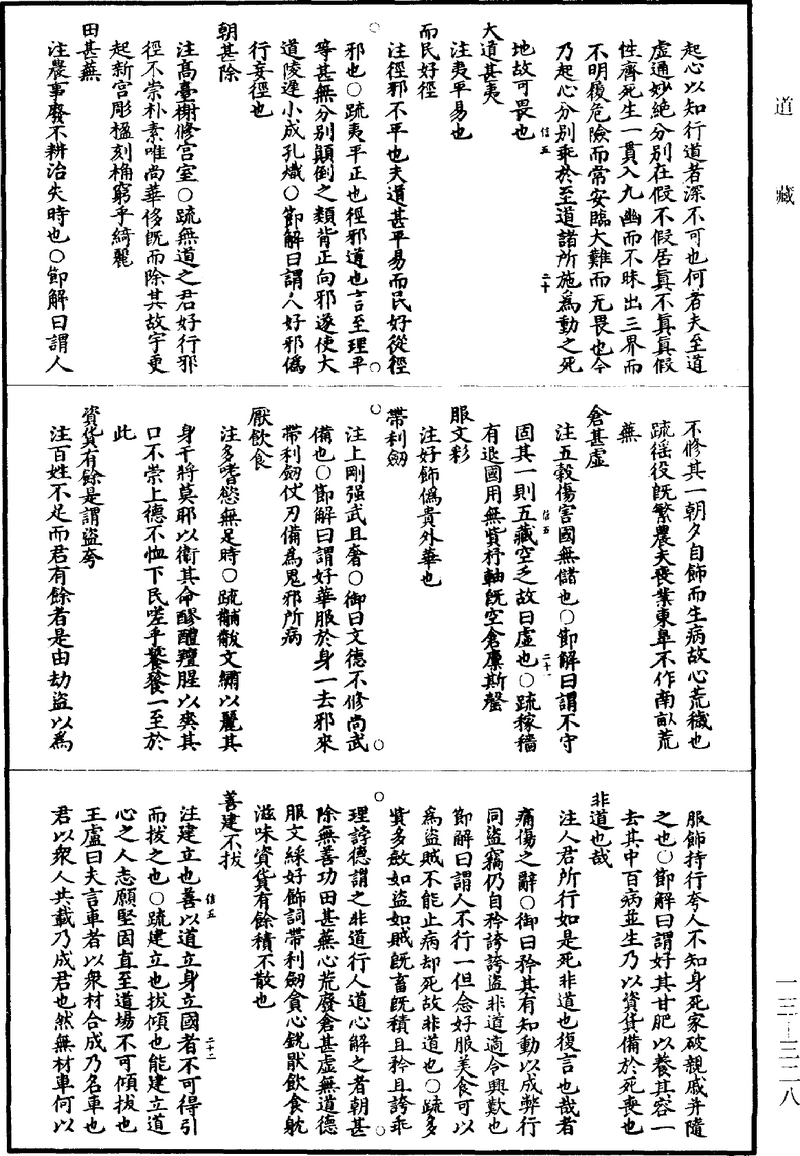 道藏
起心以知行道者深不可也何者夫至道
虛通妙絶分別在假不假居真不真真假
性齊死生一貫入九幽而不昧出三界而
不明復危險而常安臨大難而无畏也今
乃起心分別乖於至道諸所施為動之死
地故可畏也
信五
二十
大道甚夷
注夷平易也
而民好徑
注徑邪不平也夫道甚平易而民好從徑
邪也○疏夷平正也徑邪道也言至理平
等甚無分別顛倒之類背正向邪遂使大
道陵遲小成孔熾○節解曰謂人好邪偽
行妄徑也
朝甚除
注高臺榭修宮室○疏無道之君好行邪
徑不崇朴素唯尚華侈既而除其故宇更
起新宮彫楹刻桷窮乎綺麗
田甚蕪
注農事廢不耕治失時也○節解曰謂人
不修其一朝夕自飾而生病故心荒穢也
疏徭役既繁農夫喪業東皐不作南畝荒
蕪
倉甚虛
注五穀傷害國無儲也○節解曰謂不守
固其一則五藏空乏故曰虛也○疏稼穡
有退國用無貲杼軸既空倉廩斯罄
信五
二十一
服文彩
注好飾偽貴外華也
帶利劒
注上剛强武且奢○御曰文德不修尚武
備也○節解曰謂好華服於身一去邪來
帶利劒仗刃備為鬼邪所病
厭飲食
注多嗜慾無足時○疏黼黻文繡以麗其
身干將莫耶以衛其命醪醴羶腥以爽其
口不崇上德不恤下民嗟乎饕餮一至於
此
資貨有餘是謂盜夸
注百姓不足而君有餘者是由劫盜以為
服飾持行夸人不知身死家破親戚并隨
之也○節解曰謂好其甘肥以養其容一
去其中百病並生乃以資貨備於死喪也
非道也哉
注人君所行如是死非道也復言也哉者
痛傷之辭○御曰矜其有知動以成弊行
同盜竊仍自矜誇誇盜非道適令興歎也
節解曰謂人不行一但念好服美食可以
為盜賊不能止病却死故非道也○疏多
貲多斂如盜如賊既畜既積且矜且誇乖
理誖德謂之非道行人道心解之者朝甚
除無善功田甚蕪心荒廢倉甚虛無道德
服文綵好飾詞帶利劒貪心銳猒飲食躭
滋味資貨有餘積不散也
善建不拔
注建立也善以道立身立國者不可得引
而拔之也○疏建立也拔傾也能建立道
心之人志願堅固直至道場不可傾拔也
王盧曰夫言車者以衆材合成乃名車也
君以衆人共載乃成君也然無材車何以
信五
二十二
一三-三二八